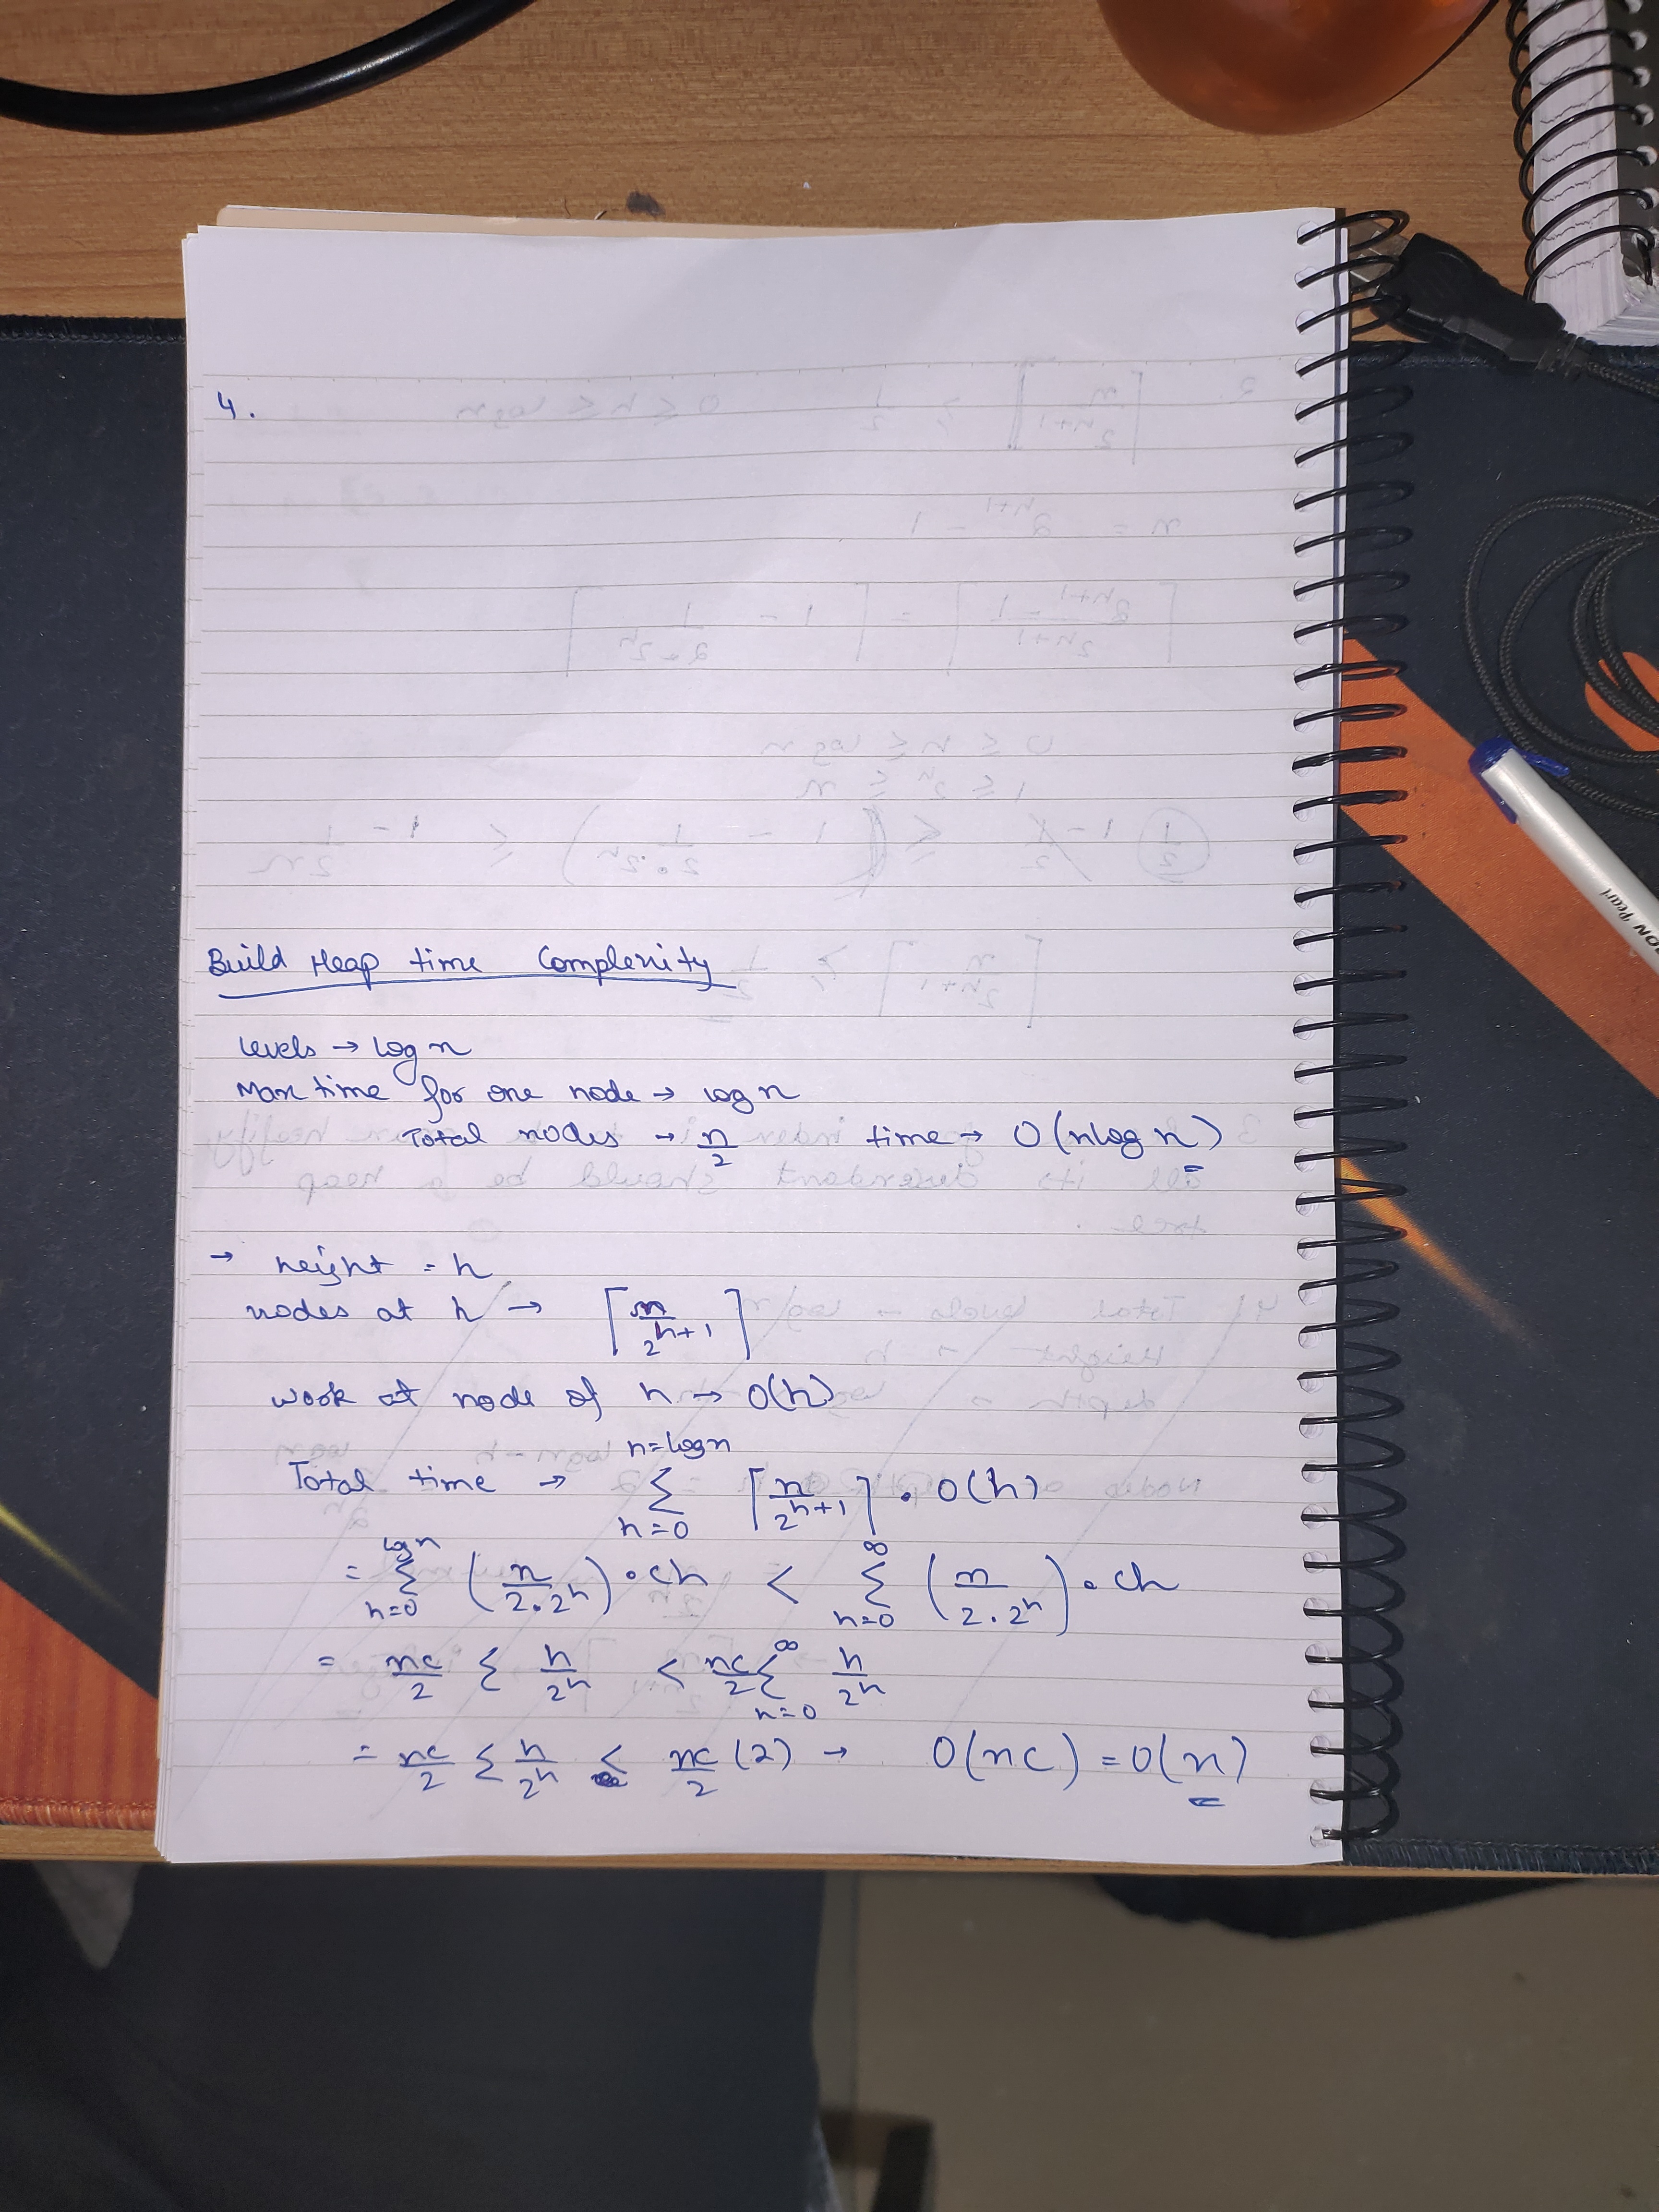 4.
Build Heap time Complexity
levels → log n
Max time for one node → log n
Total nodes → n/2 time → O(n log n)
→ height = h
nodes at h → ⌈n/2^(h+1)⌉
work at node of h → O(h)
h=log n
Total time → Σ ⌈n/2^(h+1)⌉ • O(h)
h=0
= Σ_(h=0)^(log n) (n/(2.2^h)) • ch < Σ_(h=0)^∞ (n/(2.2^h)) • ch
= nc/2 Σ h/2^h < nc/2 Σ_(h=0)^∞ h/2^h
= nc/2 Σ h/2^h < nc/2 (2) → O(nc) = O(n)